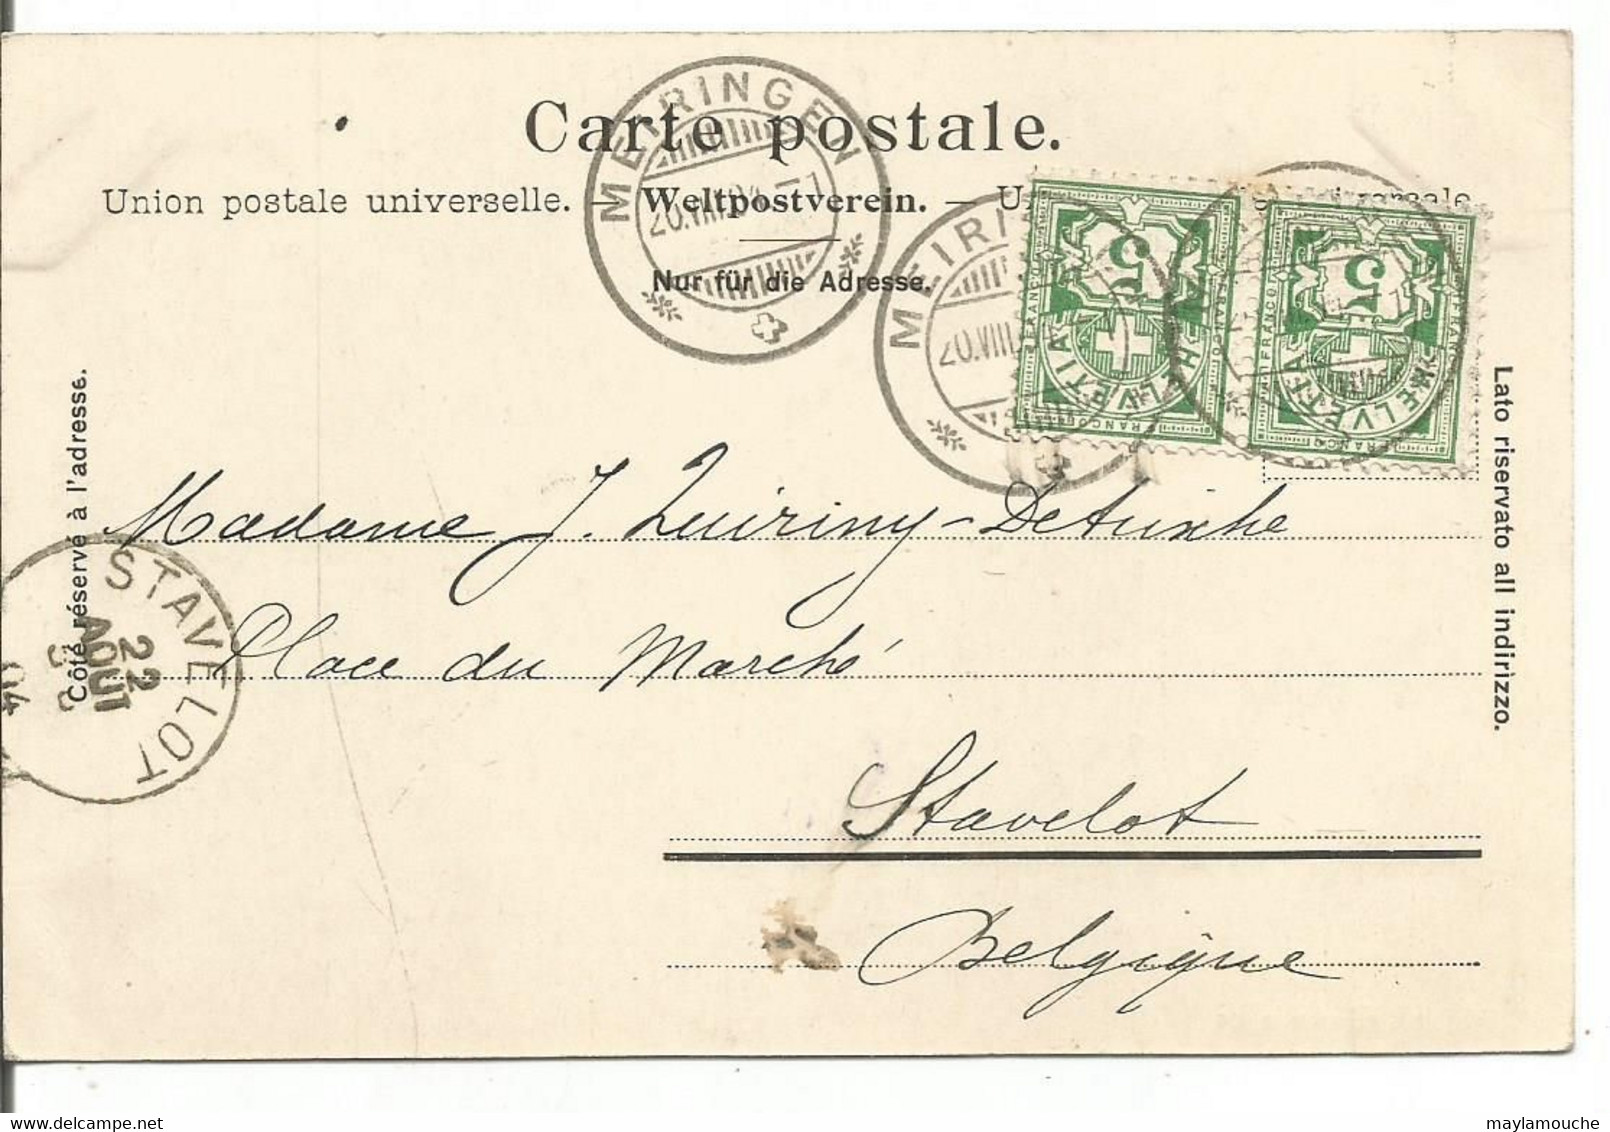 Carte postale.
Union postale universelle. — Weltpostverein. —
Nur für die Adresse.
MEIRINGEN
20.VIII.04
MEIRI
20.VIII
5
HELVETIA
FRANCO
5
HELVETIA
FRANCO
Côté réservé à l'adresse.
Lato riservato all indirizzo.
Madame J. Quiriny-Detrixhe
Place du Marché
Stavelot
Belgique
STAVELOT
22
AOUT
04
delcampe.net
maylamouche